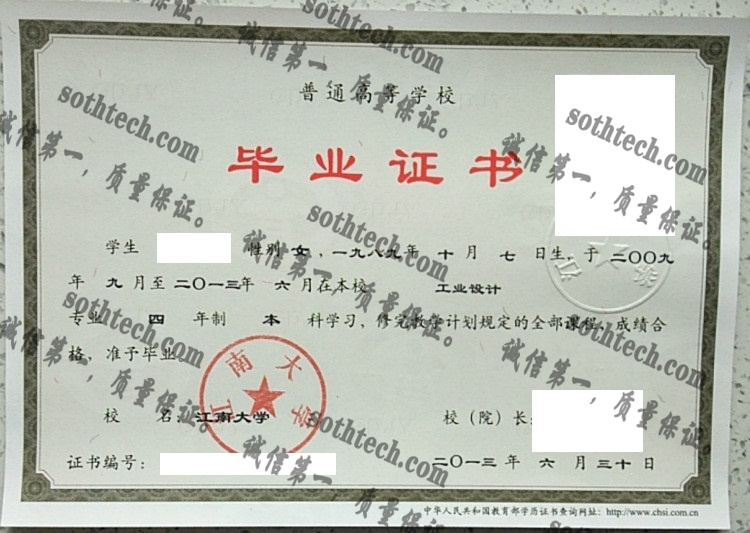 普通高等学校
毕业证书
学生 性别 女，一九八九年 十 月 七 日生，于 二〇〇九
年 九 月至 二〇一三年 六 月在本校 工业设计
专业 四 年制 本 科学习，修完教学计划规定的全部课程，成绩合
格，准予毕业
江南大学
校 名：江南大学 校（院）长：
证书编号： 二〇一三 年 六 月 三十 日
中华人民共和国教育部学历证书查询网址：http://www.chsi.com.cn
sothtech.com
诚信第一，质量保证。
sothtech.com
诚信第一，质量保证。
sothtech.com
诚信第一，质量保证。
sothtech.com
诚信第一，质量保证。
sothtech.com
诚信第一，质量保证。
sothtech.com
诚信第一，质量保证。
sothtech.com
诚信第一，质量保证。